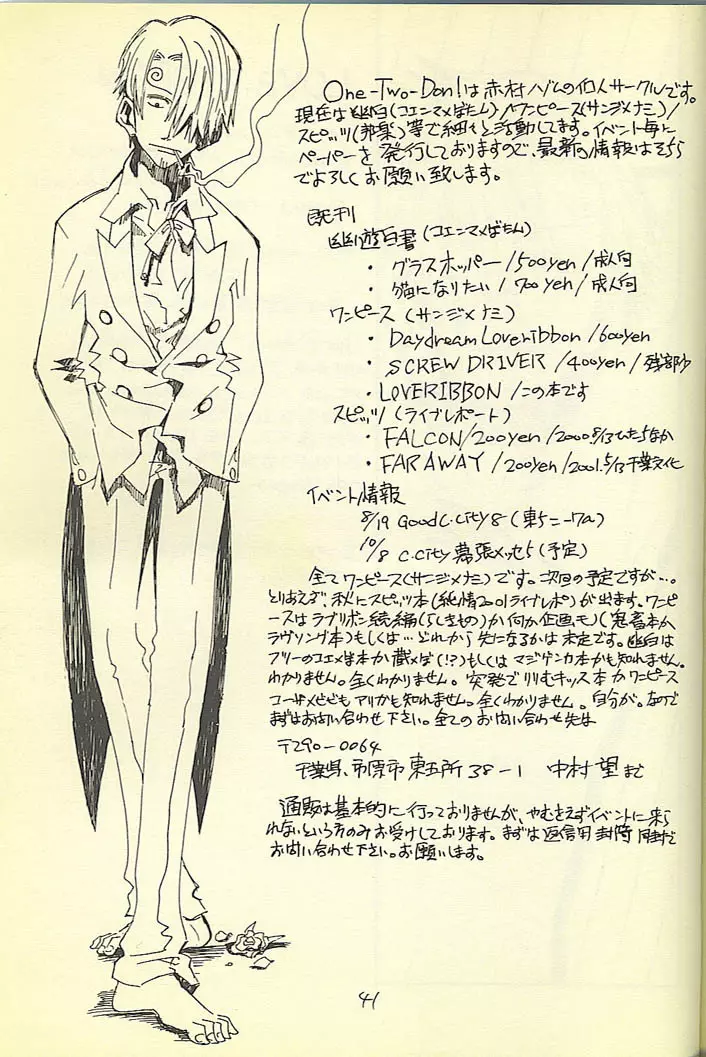 One-Two-Don!は赤村ノゾムの個人サークルです。
現在は幽白(コエンマ×ぼたん)/ワンピース(サンジ×ナミ)/
スピッツ(邦楽)等で細々と活動してます。イベント毎に
ペーパーを発行しておりますので、最新の情報はそちら
でよろしくお願い致します。
既刊
幽遊白書(コエンマ×ぼたん)
・グラスホッパー/500yen/成人向
・猫になりたい/700yen/成人向
ワンピース(サンジ×ナミ)
・Daydream Loveribbon/600yen
・SCREW DRIVER/400yen/残部少
・LOVERIBBON/この本です
スピッツ(ライブレポート)
・FALCON/200yen/2000.8/13ひたちなか
・FARAWAY/200yen/2001.5/13千葉文化
イベント情報
8/19 Good C.City 8(東5ニ-17a)
10/8 C.City幕張メッセ5(予定)
全てワンピース(サンジ×ナミ)です。次回の予定ですが…。
とりあえず、秋にスピッツ本(純情2001ライブレポ)が出ます。ワンピ
ースはラブリボン続編(らしきもの)か何か企画モノ(鬼畜本か
ラヴソング本)もしくは…どれから先になるかは未定です。幽白は
フリーのコエ×ぼ本か蔵×ぼ(!?)もしくはマジゲンカ本かも知れません。
わかりません。全くわかりません。突発でりりむキッス本かワンピース
コーザ×ビビもアリかも知れません。全くわかりません。自分が。なので
まずはお問い合わせ下さい。全てのお問い合わせ先は
〒290-0064
千葉県、市原市東五所38-1 中村望まで
通販は基本的に行っておりませんが、やむをえずイベントに来ら
れないという方のみお受けしております。まずは返信用封筒同封で
お問い合わせ下さい。お願いします。
41